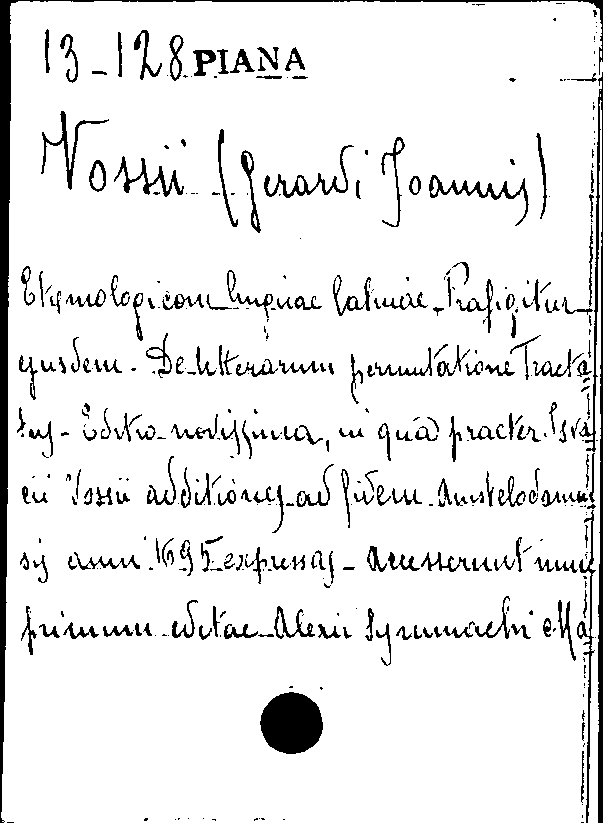 13-128 PIANA
Vossii (Gerardi Joannis)
Etymologicon linguae latinae. Praefigitur
ejusdem. De litterarum permutatione Tracta
tus - Editio novissima, in quâ praeter Isva
cii Vossii additiones ad fidem Amstelodamen
sis anni 1695 expressas - accesserunt nunc
primum editae Alexii Symmachi Ma